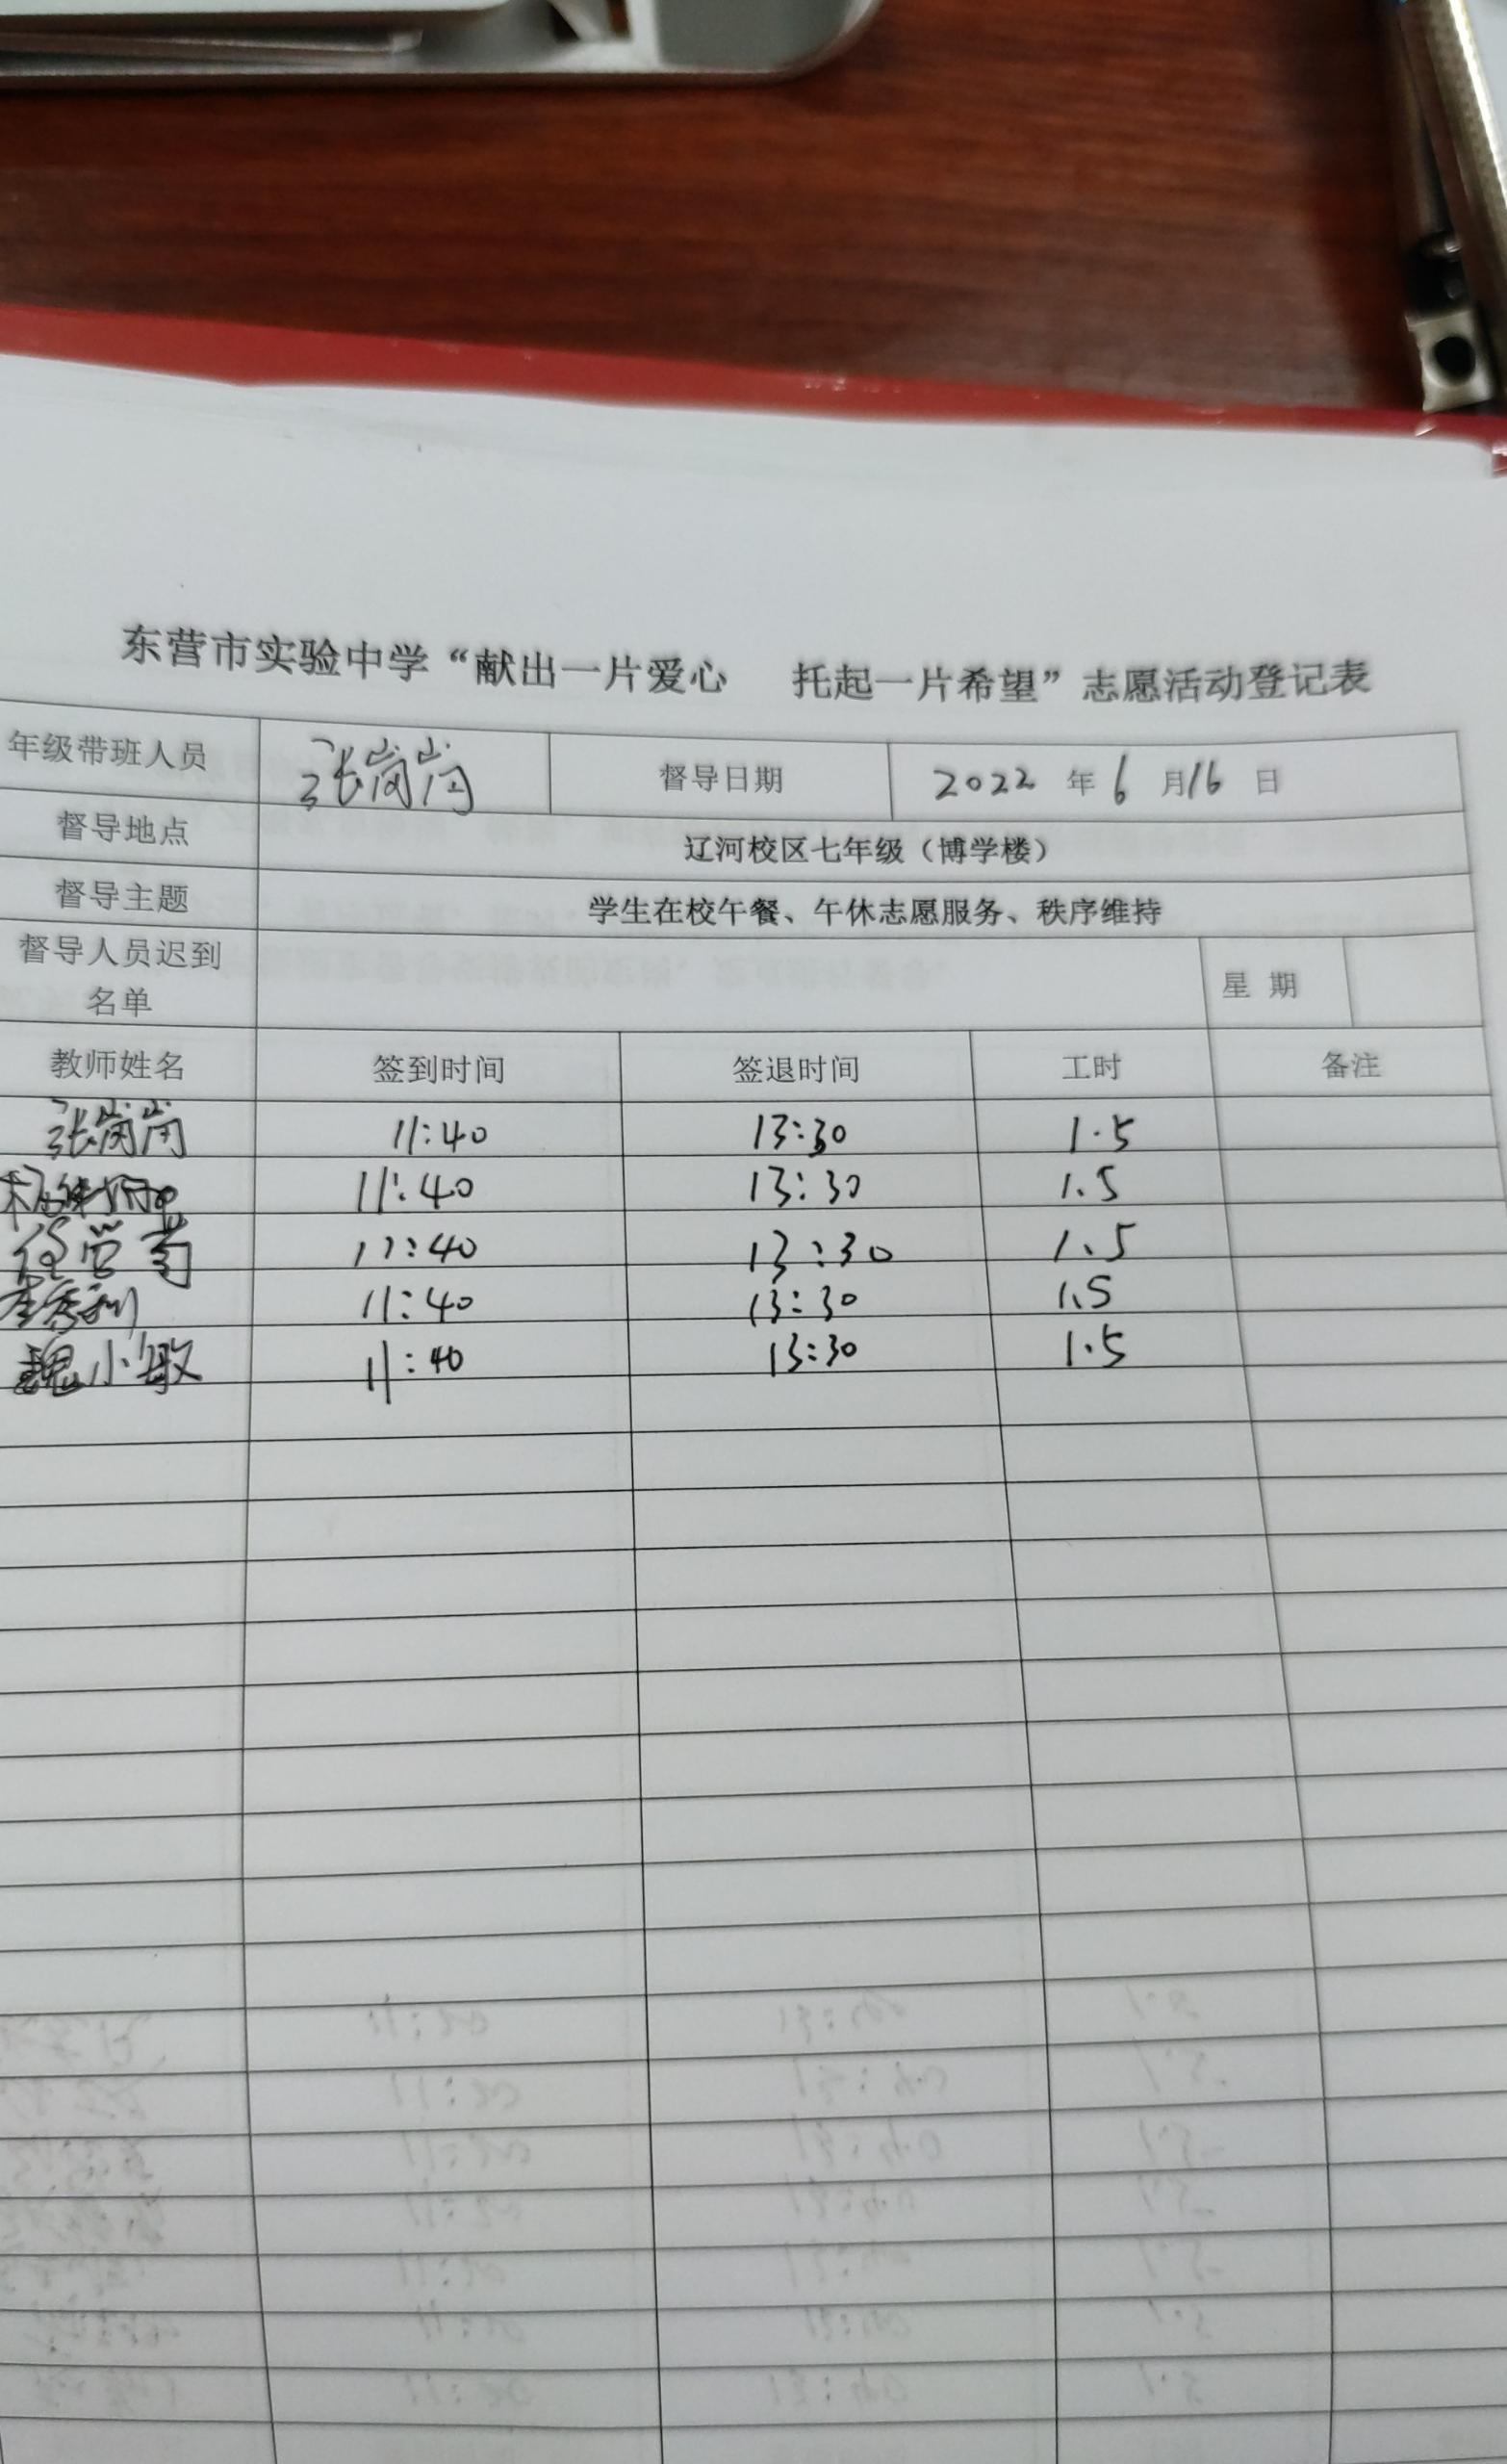 东营市实验中学“献出一片爱心 托起一片希望”志愿活动登记表
年级带班人员 张岗岗 督导日期 2022 年 6 月 16 日
督导地点 辽河校区七年级（博学楼）
督导主题 学生在校午餐、午休志愿服务、秩序维持
督导人员迟到名单 星 期
教师姓名 签到时间 签退时间 工时 备注
张岗岗 11:40 13:30 1.5
11:40 13:30 1.5
11:40 13:30 1.5
李秀利 11:40 13:30 1.5
魏小敏 11:40 13:30 1.5